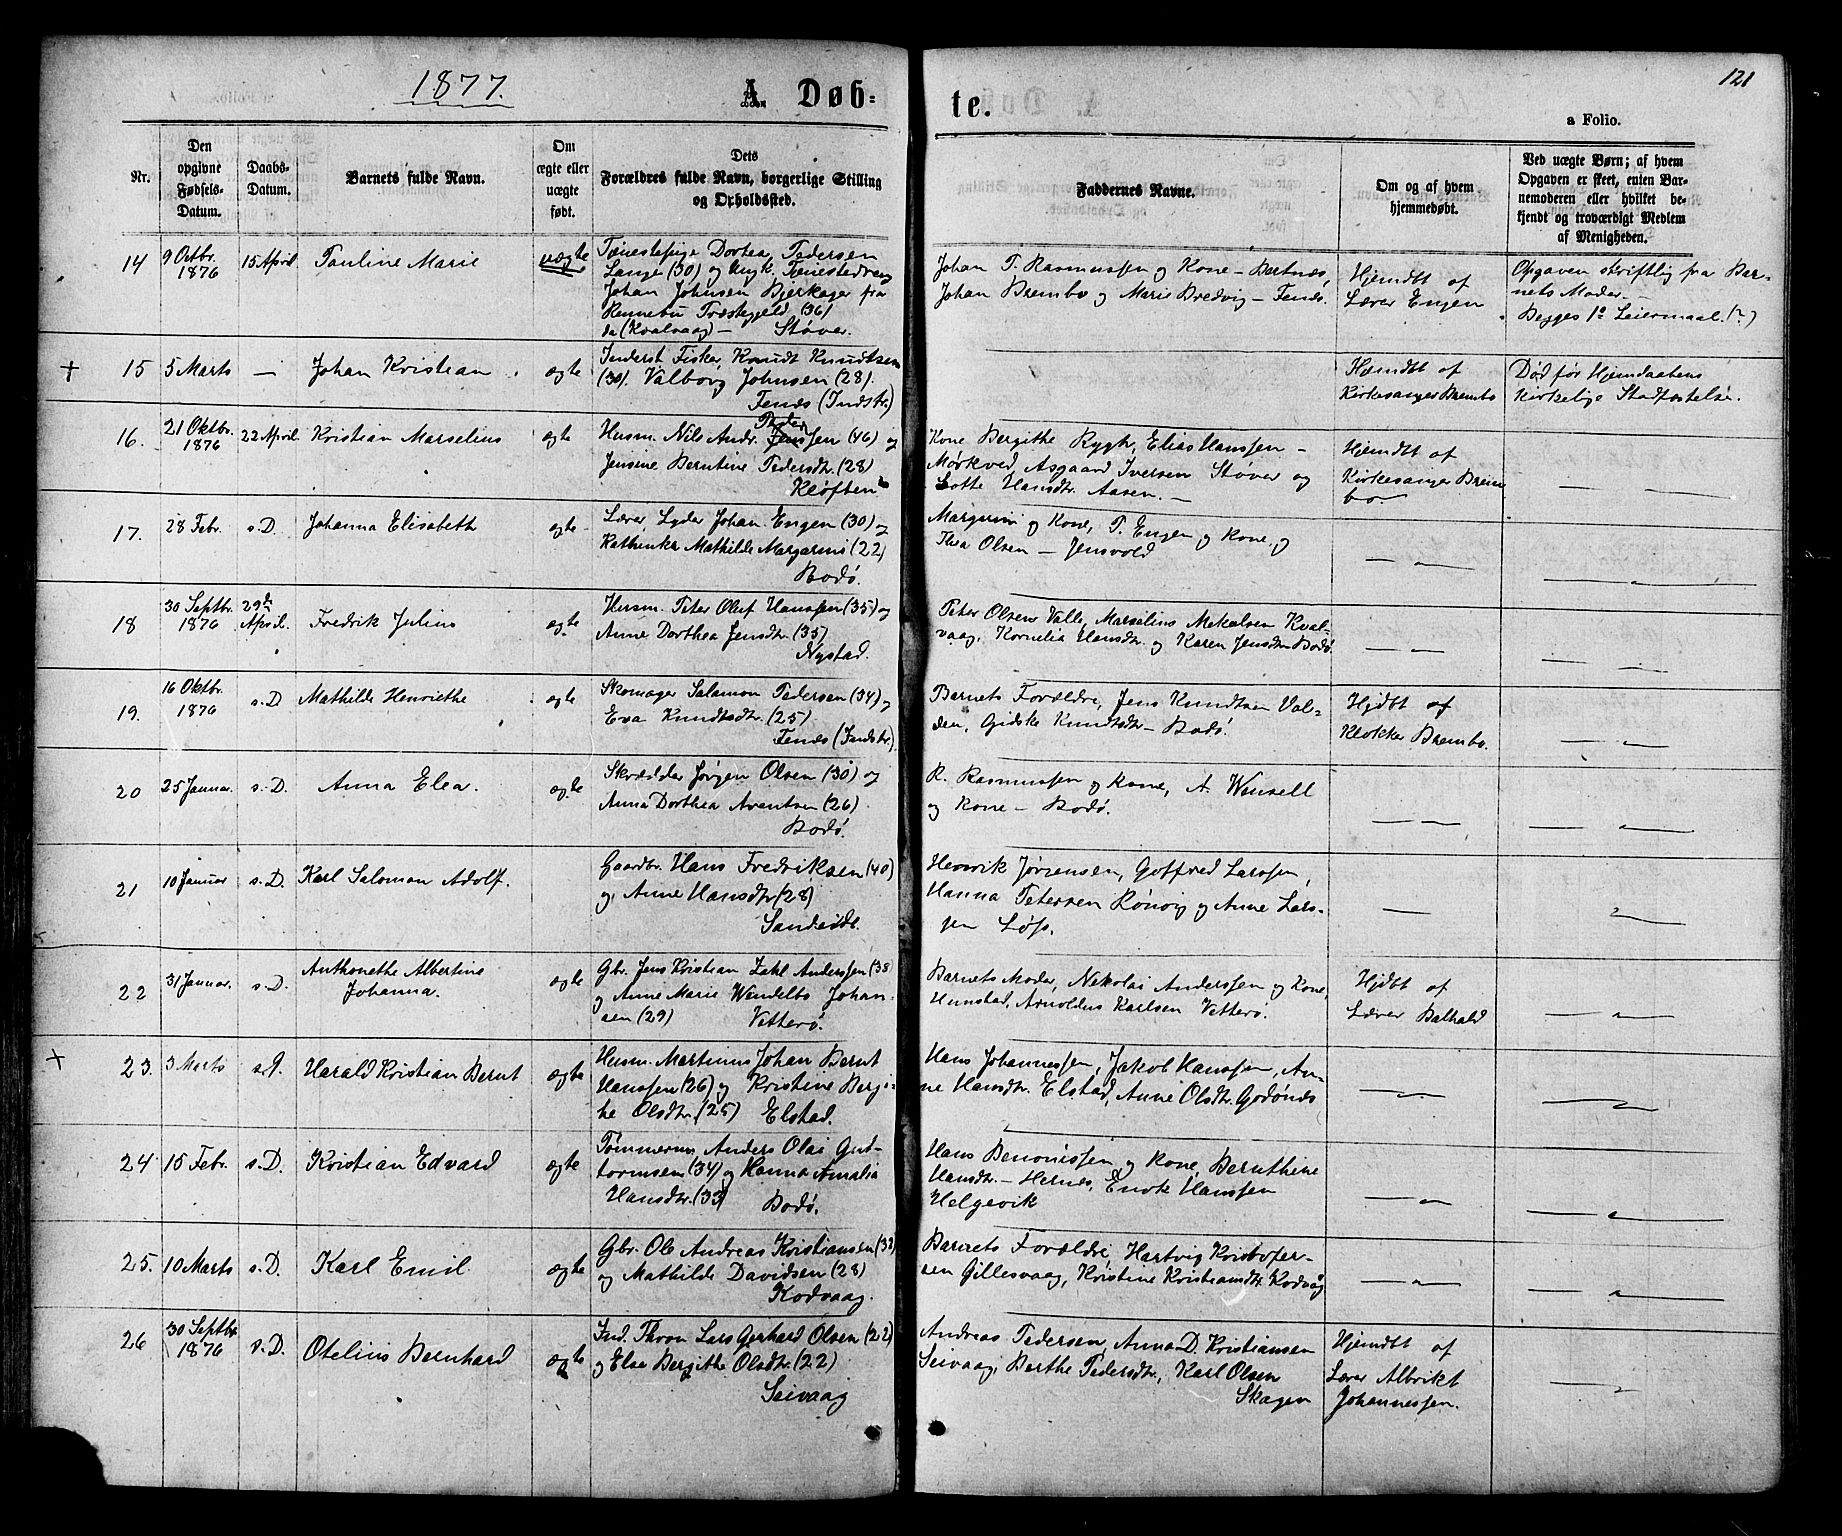 1877.
A. Døb=
te.
121
a Folio.
Nr.
Den
opgivne
Fødsels-
Datum.
Daabs-
Datum.
Barnets fulde Navn.
Om
ægte eller
uægte
født.
Dets
Forældres fulde Navn, borgerlige Stilling
og Opholdssted.
Faddernes Navne.
Om og af hvem
hjemmedøbt.
Ved uægte Børn; af hvem
Opgaven er skeet, enten Bar-
nemoderen eller hvilket be-
kjendt og troværdigt Medlem
af Menigheden.
14
9 Octbr.
1876
15 April
Pauline Marie
uægte
Tjenestepige Dorthea Pedersen
Lange (30) og Ungk. Tjenestedreng
Johan Johnsen Bjerkager fra
Rennebu Præstegjeld (36)
da (Kvalvaag) — Støver.
Johan P. Rasmussen og Kone — Bertnæs,
Johan Brembo og Marie Bredvig — Fenæs.
Hjemdt af
Lærer Engen
Opgaven skriftlig fra Bar-
nets Moder. —
Begges 1ste Leiermaal. (?)
+
15
5 Marts
—
Johan Kristian
ægte
Inderst Fisker, Knudt Knudtsen
(30). Valborg Johnsen (28).
Fenæs (Indstr.)
Hjemdt af
Kirkesanger Brembo
Død før Hjemdaabens
kirkelige Stadfæstelse.
16.
21 Oktbr.
1876
22 April
Kristian Marselius
ægte
Peder
Husm. Nils Andr. Jenssen (46) og
Jensine Berntine Pedersdtr. (28)
Kløften
Kone Bergithe Rygh, Elias Hanssen —
Mørkved, Asgaard Iversen Støver og
Lotte Hansdtr. Aasen. —
Hjemdt af
Kirkesanger Brem
bo
— —
17.
28 Febr.
s. D.
Johanna Elisabeth
ægte
Lærer Lyder Johan Engen (30) og
Kathinka Mathilde Margarini (22)
Bodø.
Margarini og Kone, P. Engen og Kone, og
Thea Olsen — Jensvold
— " —
— " —
18
30 Septbr.
1876
29de
April.
Fredrik Julius
ægte
Husm. Peter Oluf Hanssen (35) og
Anne Dorthea Jensdtr. (35)
Nystad.
Peter Olsen Valle, Marselius Mekelsen Kval-
vaag, Kornelia Hansdtr. og Karen Jensdtr Bodø.
— —
— —
19.
16 Oktbr.
1876
s. D
Mathilde Henriethe
ægte
Skomager Salamon Pedersen (34) og
Eva Knudtsdtr. (25)
Fenæs (Indstr.)
Barnets Forældre, Jens Knudtsen Val-
den, Gidske Knudtsdtr — Bodø.
Hjdbt af
Klokker Brembo.
— " —
20
25 Januar.
s. D.
Anna Elea.
ægte
Skrædder Jørgen Olsen (30) og
Anna Dorthea Arentsen (26)
Bodø.
R. Rasmussen og Kone, A. Wensell
og Kone — Bodø.
— —
— " —
21
10 Januar
s. D.
Karl Saloman Adolf.
Gaardbr. Hans Fredriksen (40)
og Anne Hansdtr (28)
Henrik Jørgensen, Gotfred Larssen,
Hanna Petersen Rønvig og Anne Lars-
sen Løp.
—
— " —
22
31 Januar.
s. D.
Anthonethe Albertine
Johanna.
ægte
Gbr. Jens Kristian Zahl Anderssen (38
og Anne Marie Wendelbo Johan-
sen (29) Vetterø.
Barnets Moder, Nikolai Anderssen og Kone,
Hunstad, Arnoldus Karlsen Vetterø.
Hjdbt af
Lærer Balhald
— " —
+
23.
3 Marts
s. D.
Harald Kristian Bernt
ægte
Husm. Martinus Johan Bernt
Hanssen (26) og Kristine Bergi-
the Olsdtr. (25) Elstad.
Hans Johannessen, Jakob Hanssen, An-
ne Hansdtr. Elstad, Anne Olsdtr. Godønes
— " —
— " —
24
15 Febr.
s. D.
Kristian Edvard
ægte
Tømmerm. Anders Olai Gut-
tormsen (34) og Hanna Amalia
Hansdtr. (33) Bodø.
Hans Benonissen og Kone, Bernthine
Hansdtr. — Hernes, Enok Hanssen
Helgevik
— " —
— " —
25.
10 Marts
s. D.
Karl Emil
ægte
Gbr. Ole Andreas Kristiansen (32)
og Mathilde Davidsen (28)
Kodvaag.
Barnets Forældre, Hartvig Kristofer-
sen Gillesvaag, Kristine Kristiansdtr. Kodvaag
— " —
— " —
26
30 Septbr
1876
s. D.
Otelius Bernhard
ægte
Ind. Thron Lars Gerhard Olsen (22)
og Else Bergithe Olsdtr. (22)
Seivaag
Andreas Pedersen, Anna D. Kristiansen
Seivaag, Berthe Pedersdtr., Karl Olsen
Skagen
Hjemdt af
Lærer Albrikt
Johannessen.
— " —